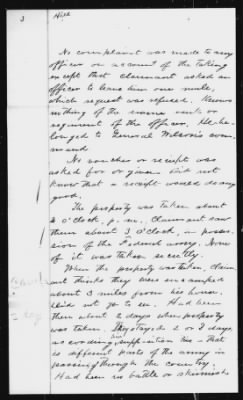 3
No complaint was made to any
officer on account of the taking
except that claimant asked an
officer to leave him one mule,
which request was refused. Knows
nothing of the name rank or
regiment of the officer. He be-
longed to General Wilson's com-
mand
No voucher or receipt was
asked for or given. Did not
know that a receipt would do any
good.
The property was taken about
2 o'clock, p.m., Claimant saw
them about 3 o'clock, in posses-
sion of the Federal army. None
of it was taken secretly.
When the property was taken, claim-
ant thinks they were encamped
about 3 miles from his house.
Did not go to see. Had been
there about 2 days when property
was taken. They stayed 2 or 3 days
as
that
is different parts of the army in
passing through the country.
Had been no battle or skirmish